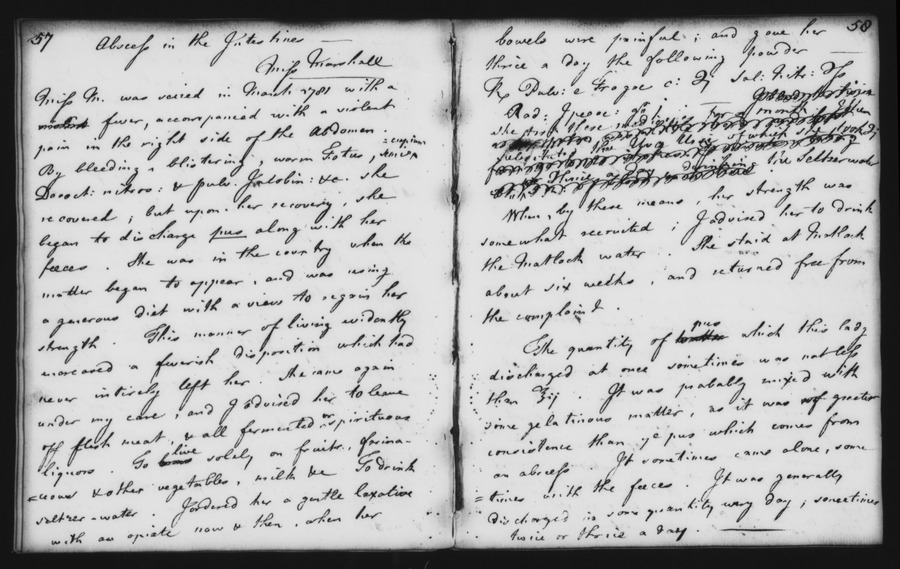 57
Abscess in the Intestines
Miss Marshall
Miss M. was seized in March 1781 with a
violent fever, accompanied with a violent
pain in the right side of the Abdomen.
By bleeding, blistering, warm Fotus,
Decoct: nitros: & pulv. Jalobin: &c. she
recovered; but upon her recovery, she
began to discharge pus along with her
fæces. She was in the country when the
matter began to appear, and was using
a generous diet with a view to regain her
strength. This manner of living evidently
increased a feverish disposition which had
never intirely left her. She came again
under my care, and I advised her to leave
off flesh meat, & all fermented or spirituous
liquors. To live solely on fruits, farina-
=ceous & other vegetables, milk &c. To drink
seltzer-water. I ordered her a gentle laxative
with an opiate now & then, when her
58
bowels were painful; and gave her
thrice a day the following powder
℞ Pulv: e Tragac c: ʒj Sal: Nitr: ʒss
Rad: Ipecac: gr j.
she took these
the Uva Ursi of which she took ʒj
thrice a day
live Seltzer water
When, by these means, her strength was
somewhat recruited; I advised her to drink
the Matlock water. She staid at Matlock
about six weeks, and returned free from
the complaint.
The quantity of matter pus which this lady
discharged at once sometimes was not less
than ℥ij. It was probably mixed with
some gelatinous matter, as it was of greater
consistence than ye pus which comes from
an abscess. It sometimes came alone, some
=times with the fæces. It was generally
discharged in some quantity every day, sometimes
twice or thrice a day.